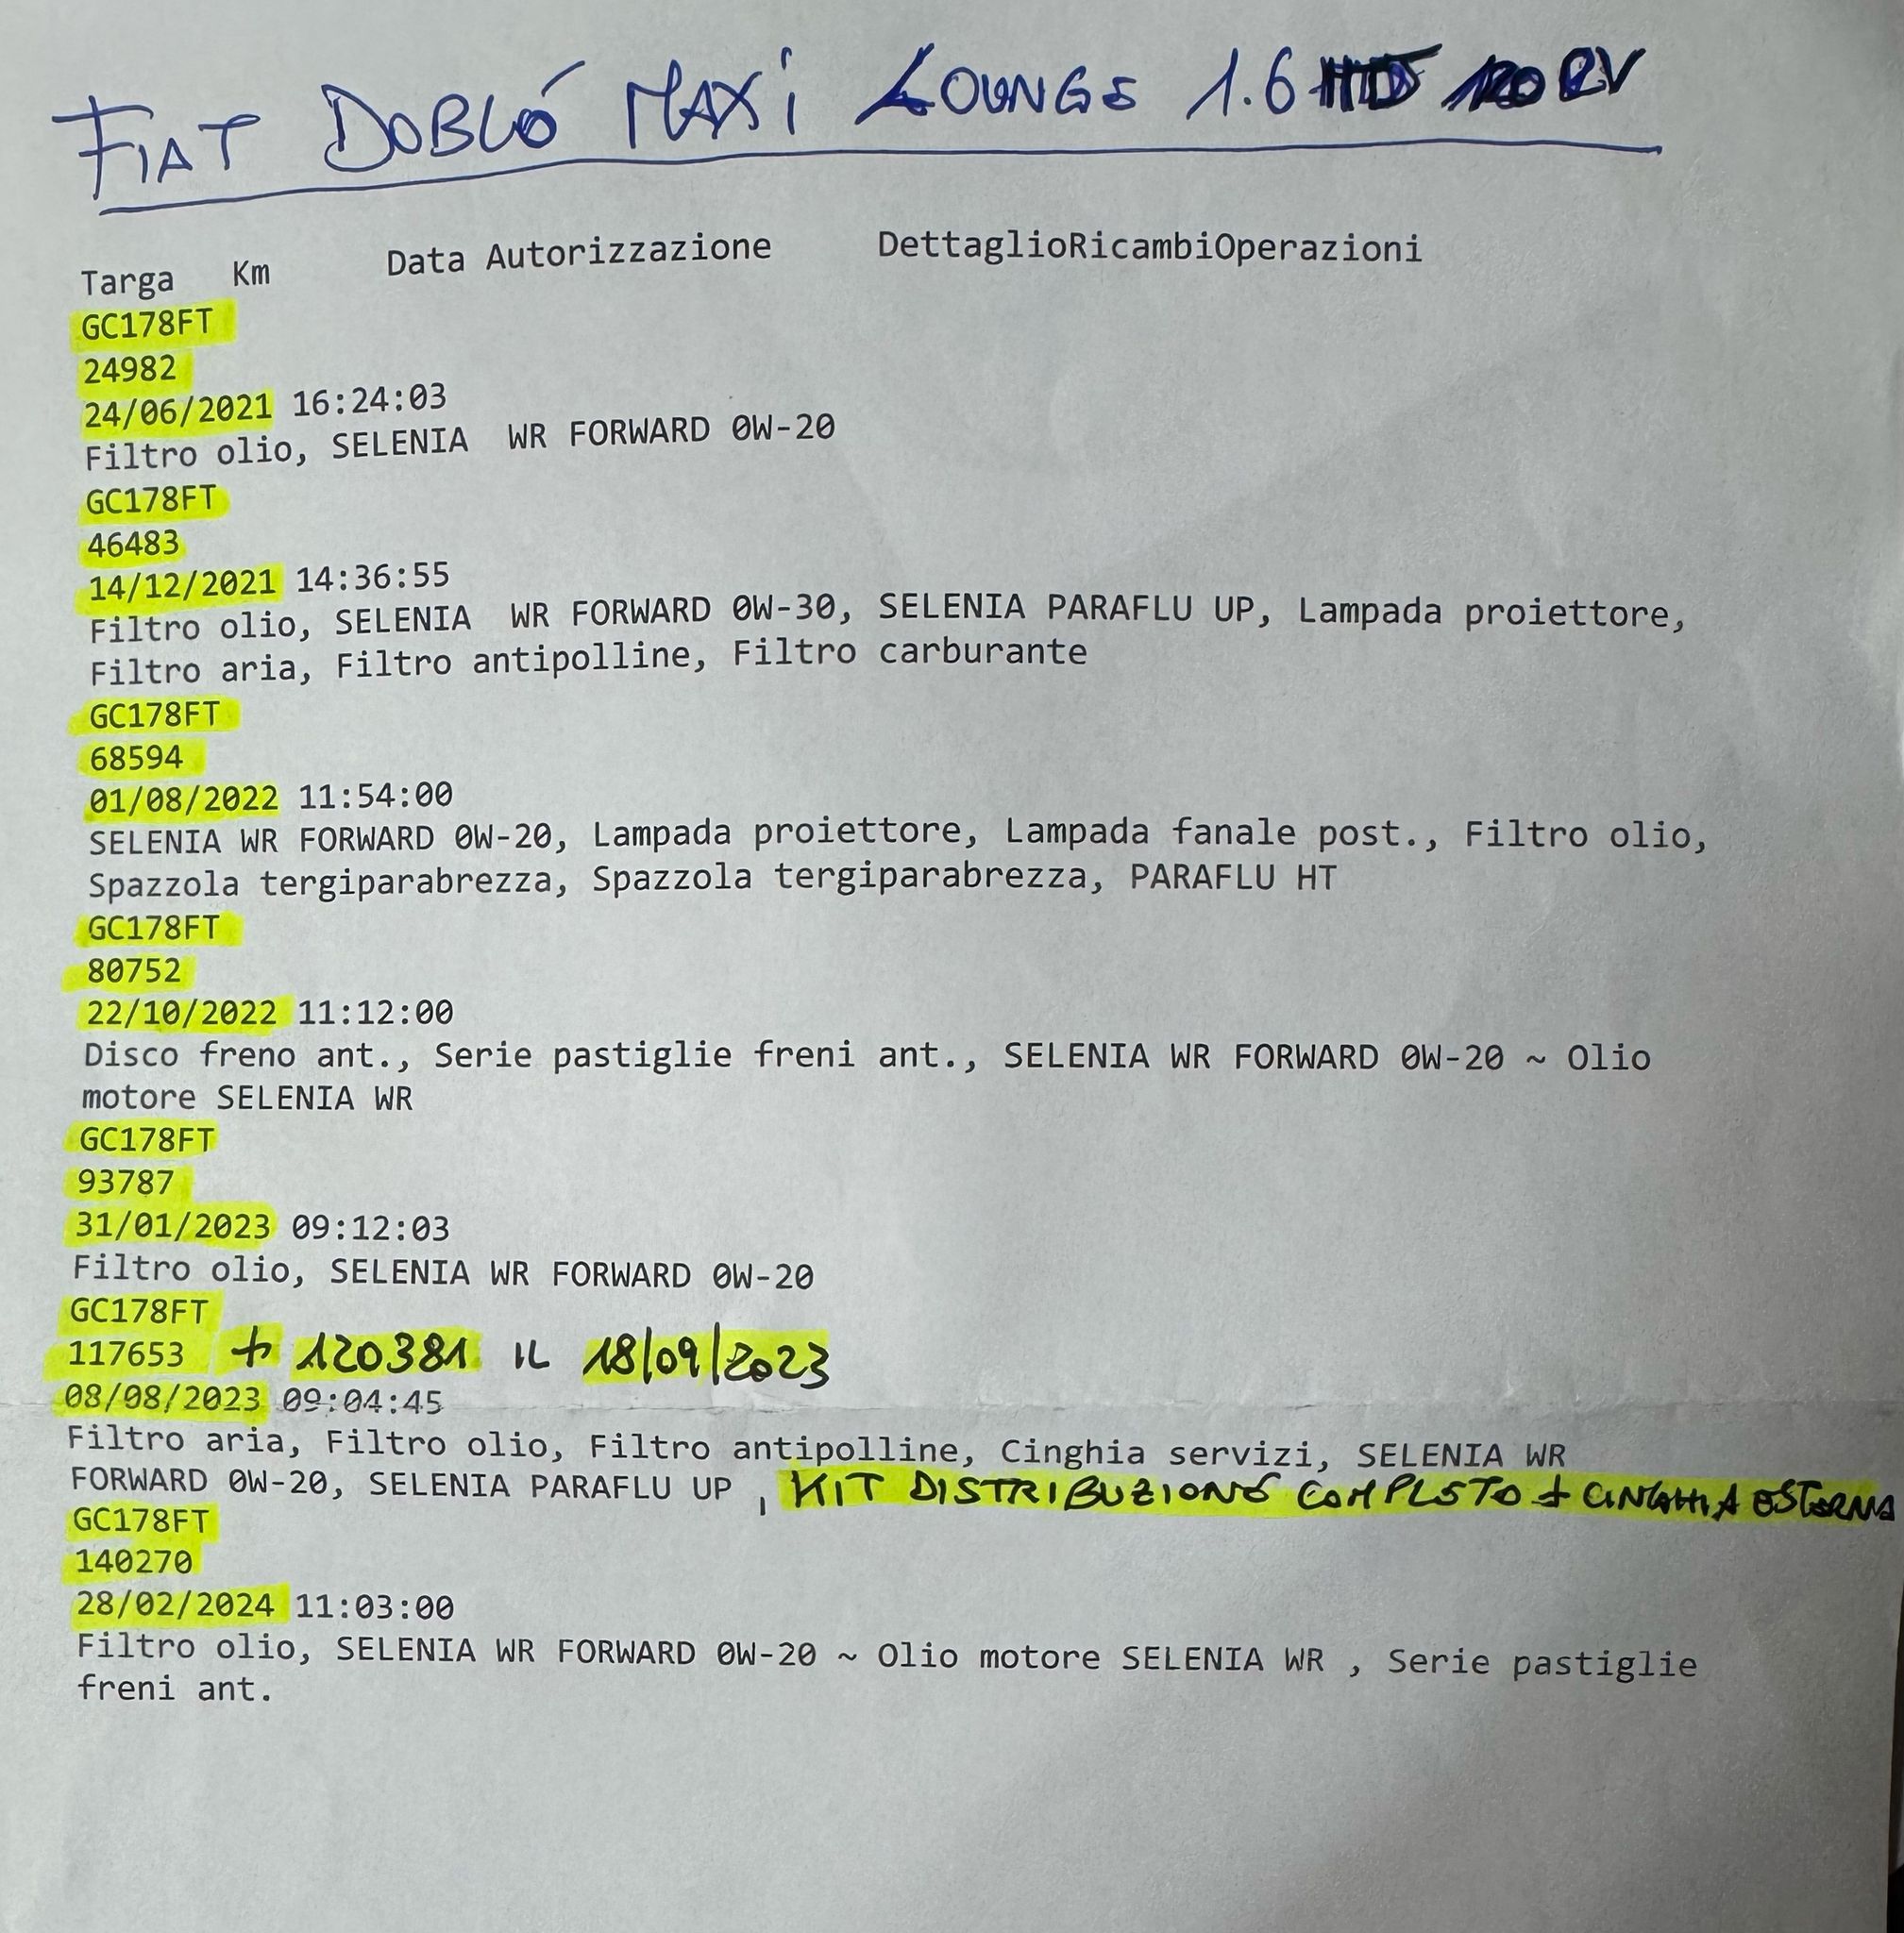 FIAT DOBLÓ MAXi LOUNGE 1.6 120 CV
Targa Km Data Autorizzazione DettaglioRicambiOperazioni
GC178FT
24982
24/06/2021 16:24:03
Filtro olio, SELENIA WR FORWARD 0W-20
GC178FT
46483
14/12/2021 14:36:55
Filtro olio, SELENIA WR FORWARD 0W-30, SELENIA PARAFLU UP, Lampada proiettore,
Filtro aria, Filtro antipolline, Filtro carburante
GC178FT
68594
01/08/2022 11:54:00
SELENIA WR FORWARD 0W-20, Lampada proiettore, Lampada fanale post., Filtro olio,
Spazzola tergiparabrezza, Spazzola tergiparabrezza, PARAFLU HT
GC178FT
80752
22/10/2022 11:12:00
Disco freno ant., Serie pastiglie freni ant., SELENIA WR FORWARD 0W-20 ~ Olio
motore SELENIA WR
GC178FT
93787
31/01/2023 09:12:03
Filtro olio, SELENIA WR FORWARD 0W-20
GC178FT
117653 + 120381 IL 18/09/2023
08/08/2023 09:04:45
Filtro aria, Filtro olio, Filtro antipolline, Cinghia servizi, SELENIA WR
FORWARD 0W-20, SELENIA PARAFLU UP , KIT DISTRIBUZIONE COMPLETO + CINGHIA ESTERNA
GC178FT
140270
28/02/2024 11:03:00
Filtro olio, SELENIA WR FORWARD 0W-20 ~ Olio motore SELENIA WR , Serie pastiglie
freni ant.